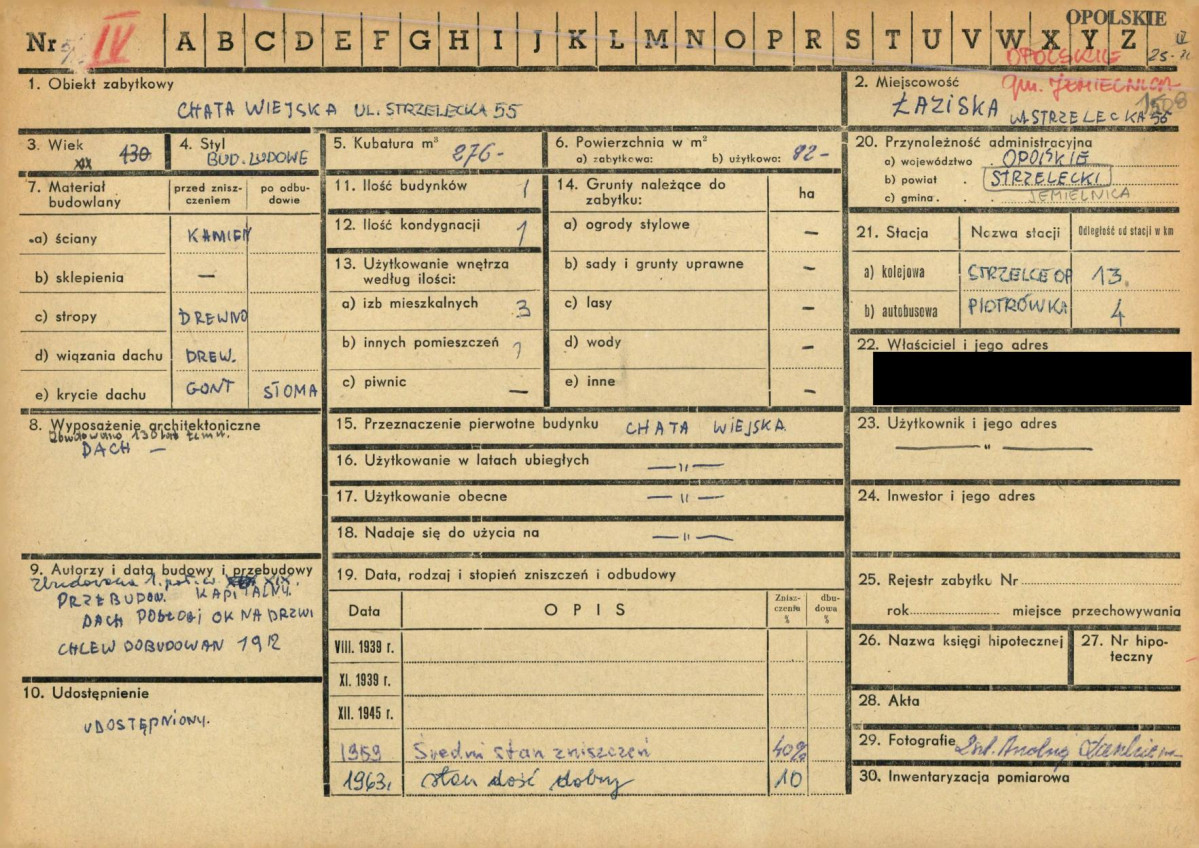 OPOLSKIE
Nr IV A B C D E F G H I J K L M N O P R S T U V W X Y Z
OPOLSKIE
gm. JEMIELNICA
1508
1. Obiekt zabytkowy
CHATA WIEJSKA UL. STRZELECKA 55
2. Miejscowość
ŁAZISKA
UL. STRZELECKA 55
3. Wiek
XIX 130
4. Styl
BUD. LUDOWE
5. Kubatura m³ 276-
6. Powierzchnia w m²
a) zabytkowa: b) użytkowa: 82-
20. Przynoleżność administracyjna
a) województwo OPOLSKIE
b) powiat STRZELECKI
c) gmina JEMIELNICA
7. Materiał budowlany
przed zniszczeniem
po odbudowie
a) ściany KAMIEŃ
b) sklepienia —
c) stropy DREWNO
d) wiązania dachu DREW.
e) krycie dachu GONT SŁOMA
11. Ilość budynków 1
12. Ilość kondygnacji 1
13. Użytkowanie wnętrza według ilości:
a) izb mieszkalnych 3
b) innych pomieszczeń 1
c) piwnic —
14. Grunty należące do zabytku:
ha
a) ogrody stylowe —
b) sady i grunty uprawne —
c) lasy —
d) wody —
e) inne —
21. Stacja Nazwa stacji Odległość od stacji w km
a) kolejowa STRZELCE OP 13.
b) autobusowa PIOTRÓWKA 4
22. Właściciel i jego adres
8. Wyposażenie architektoniczne
Zbudowano 130 lat temu.
DACH —
15. Przeznaczenie pierwotne budynku CHATA WIEJSKA
16. Użytkowanie w latach ubiegłych —"—
17. Użytkowanie obecne —"—
18. Nadaje się do użycia na —"—
23. Użytkownik i jego adres
—"—
24. Inwestor i jego adres
9. Autorzy i data budowy i przebudowy
Zbudowana 1. poł. w. XIX.
PRZEBUDOW. KAPITALNY.
DACH PODŁOGI OKNA DRZWI
CHLEW DOBUDOWAN 1912
10. Udostępnienie
UDOSTĘPNIONY.
19. Data, rodzaj i stopień zniszczeń i odbudowy
Data OPIS Zniszczenia % dbudowa %
VIII. 1939 r.
XI. 1939 r.
XII. 1945 r.
1959 Średni stan zniszczeń 40%
1963r. stan dość dobry 10
25. Rejestr zabytku Nr
rok miejsce przechowywania
26. Nazwa księgi hipotecznej
27. Nr hipoteczny
28. Akta
29. Fotografie
30. Inwentaryzacja pomiarowa